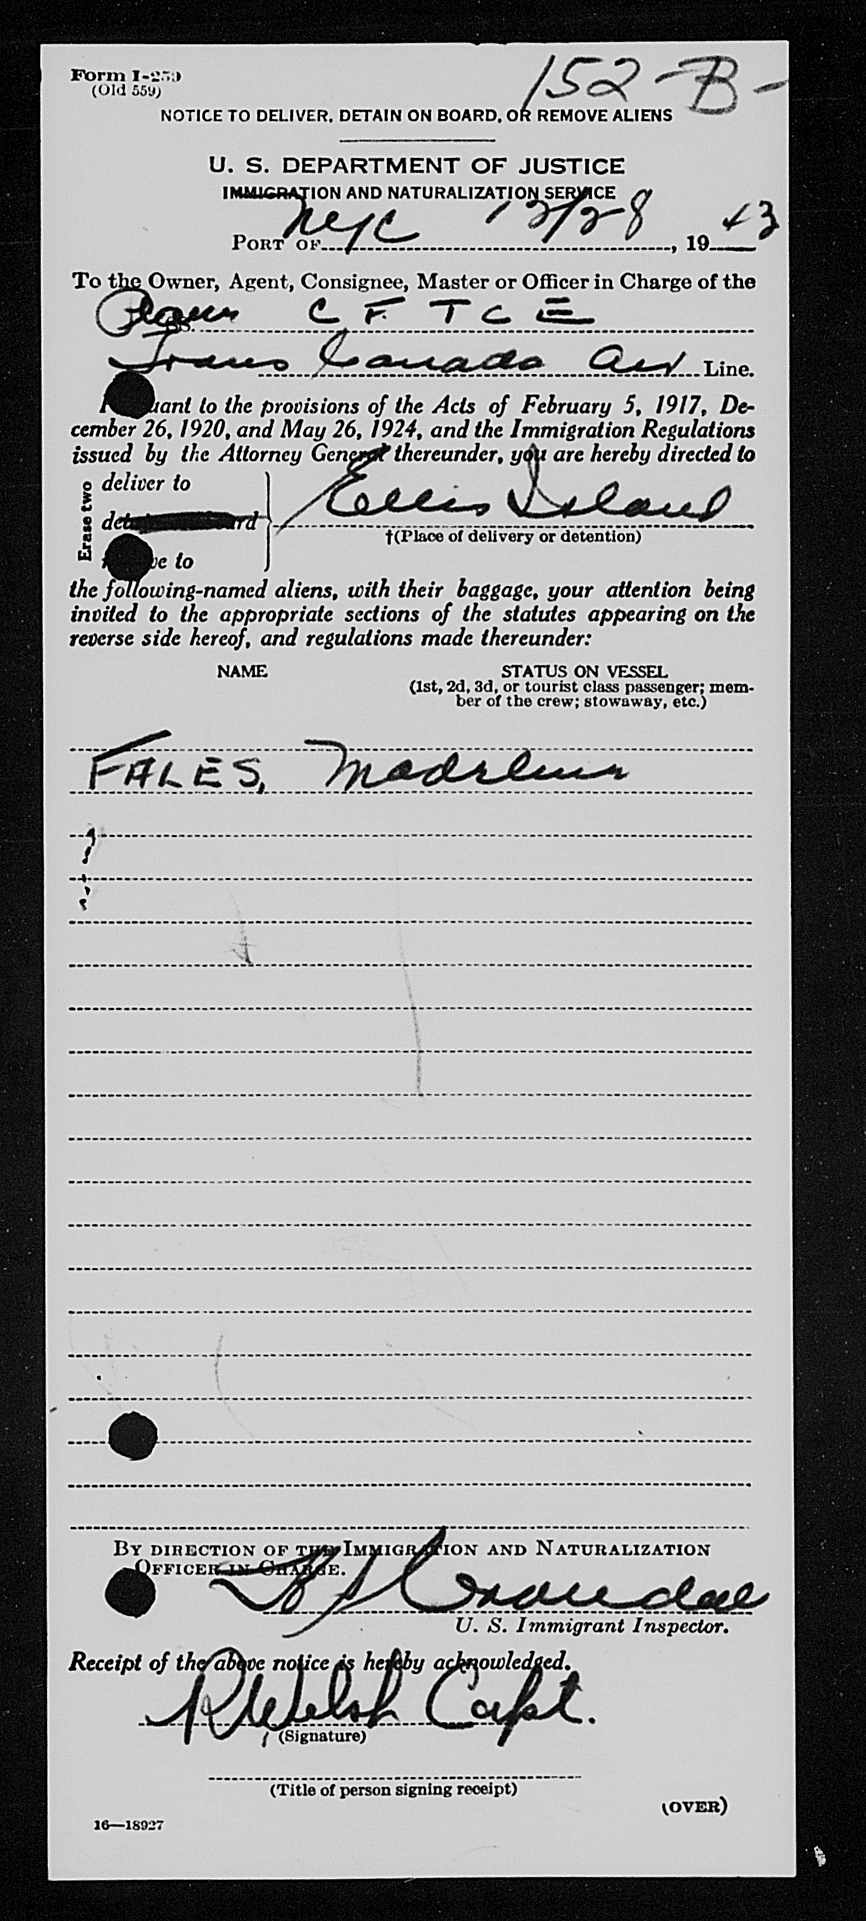 Form I-259
(Old 559)
152-B-
NOTICE TO DELIVER, DETAIN ON BOARD, OR REMOVE ALIENS
U. S. DEPARTMENT OF JUSTICE
IMMIGRATION AND NATURALIZATION SERVICE
PORT OF NYC 12/28, 1943
To the Owner, Agent, Consignee, Master or Officer in Charge of the
Plane CF TCE
Trans Canada Air Line.
to the provisions of the Acts of February 5, 1917, De-
cember 26, 1920, and May 26, 1924, and the Immigration Regulations
issued by the Attorney General thereunder, you are hereby directed to
Erase two
deliver to
Ellis Island
†(Place of delivery or detention)
to
the following-named aliens, with their baggage, your attention being
invited to the appropriate sections of the statutes appearing on the
reverse side hereof, and regulations made thereunder:
NAME STATUS ON VESSEL
(1st, 2d, 3d, or tourist class passenger; mem-
ber of the crew; stowaway, etc.)
FALES, Madeleine
BY DIRECTION OF THE IMMIGRATION AND NATURALIZATION
OFFICER IN CHARGE.
Crandall
U. S. Immigrant Inspector.
Receipt of the above notice is hereby acknowledged.
R Welsh Capt.
(Signature)
(Title of person signing receipt)
(OVER)
16—18927